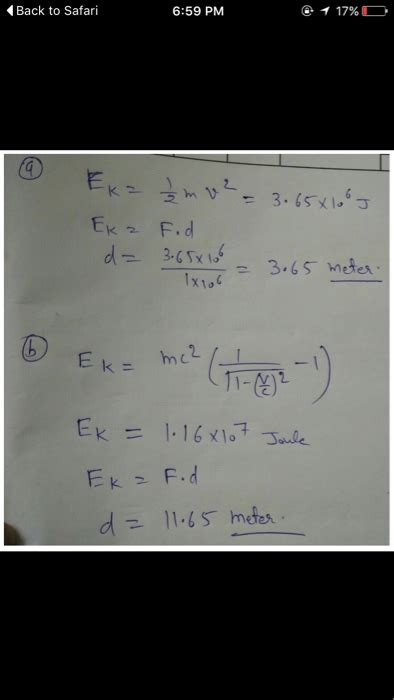 Back to Safari 6:59 PM 17%
(a)
E_K = 1/2 m v² = 3.65×10⁶ J
E_K = F.d
d = 3.65×10⁶ / 1×10⁶ = 3.65 meter.
(b)
E_K = mc² (1/√(1-(v/c)²) - 1)
E_K = 1.16×10⁷ Joule
E_K = F.d
d = 11.65 meter.